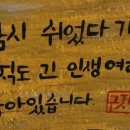 잠시 쉬었다 가
직도 긴 인생여
남아있습니다